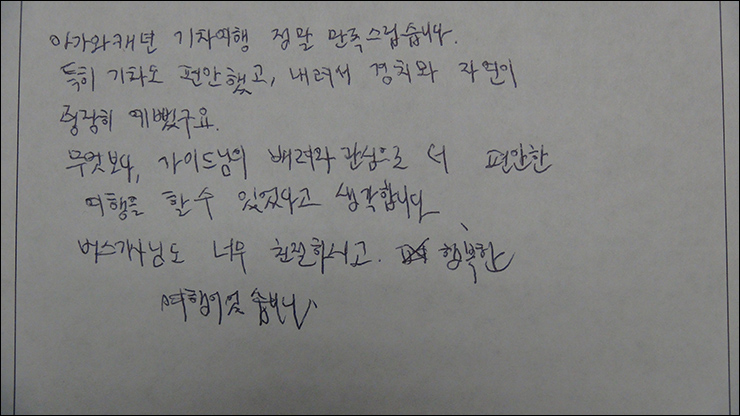 아가와캐년 기차여행 정말 만족스럽습니다.
특히 기차도 편안했고, 내려서 경치와 자연이
굉장히 예뻤구요.
무엇보다, 가이드님의 배려와 관심으로 더 편안한
여행을 할 수 있었다고 생각합니다.
버스기사님도 너무 친절하시고. 행복한
여행이었습니다.